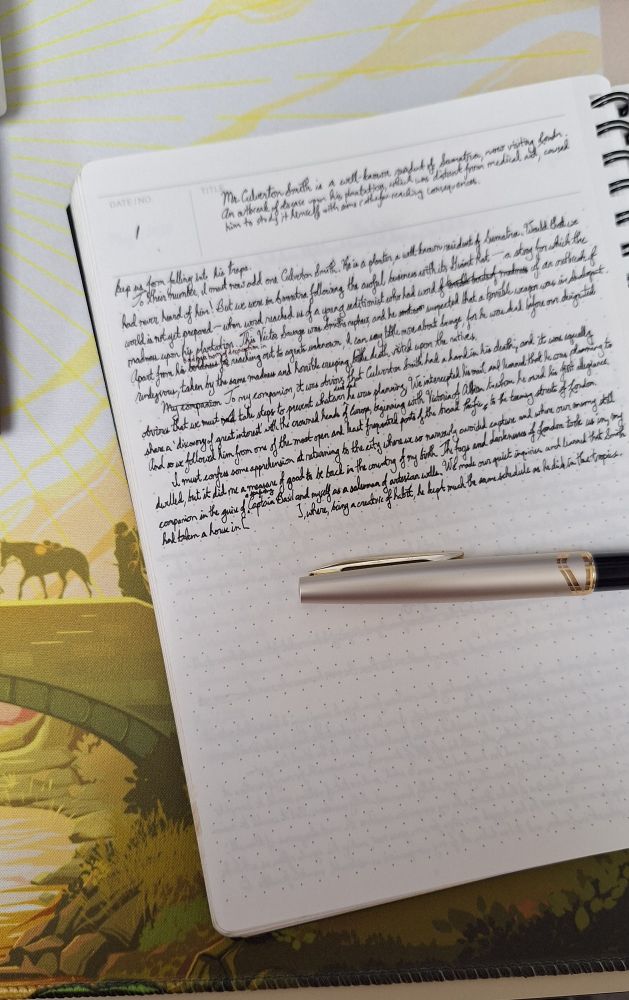 DATE/NO.
TITLE
1
Mr. Culverton Smith is a well-known resident of Sumatra, now visiting London.
An outbreak of disease upon his plantation, which was distant from medical aid, caused
him to study it himself with some rather far-reaching consequences.
keep us from falling into his traps.
To their number, I must now add one Culverton Smith. He is a planter, a well-known resident of Sumatra. Would that we
had never heard of him! But we were in Sumatra following the awful business with its Giant Rat — a story for which the
world is not yet prepared — when word reached us of a young who had word of an outbreak of
madness upon his plantation. This Victor Savage was Smith's nephew and he suggested that a terrible weapon was in development.
Apart from his reaching out to agents unknown, I can say little more about Savage, for he was dead before our designated
rendezvous, taken by the same madness and horrible creeping death, visited upon the natives.
My companion To my companion, it was obvious that Culverton Smith had a hand in his death, and it was equally
obvious that we must take steps to prevent whatever he was planning. We intercepted his mail and learned that he was planning to
share a 'discovery of great interest' with the crowned heads of Europe, beginning with Victoria of Albion, he whom he made his first allegiance.
And so we followed him from one of the most open and least frequented parts of the broad Pacific, to the teeming streets of London.
I must confess some apprehension at returning to the city where we so narrowly avoided capture and where our enemy still
dwelled, but it did me a measure of good to be back in the country of my birth. The fogs and darkness of London took us in, my
companion in the guise of Captain Basil and myself as a salesman of artesian wells. We made our quiet inquiries and learned that Smith
had taken a house in [ ], where, being a creature of habit, he kept much the same schedule as he did in the tropics.